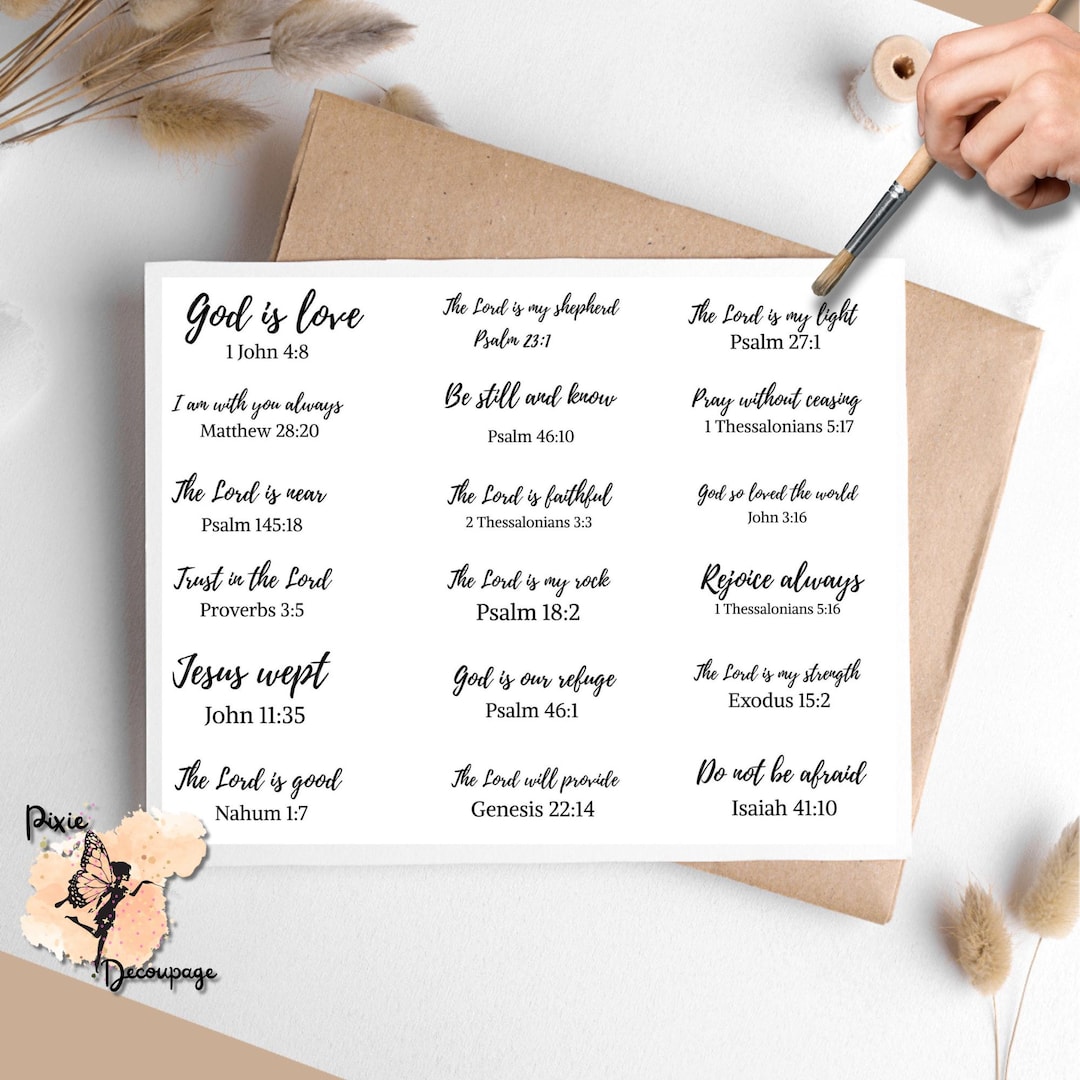 God is love
1 John 4:8
The Lord is my shepherd
Psalm 23:1
The Lord is my light
Psalm 27:1
I am with you always
Matthew 28:20
Be still and know
Psalm 46:10
Pray without ceasing
1 Thessalonians 5:17
The Lord is near
Psalm 145:18
The Lord is faithful
2 Thessalonians 3:3
God so loved the world
John 3:16
Trust in the Lord
Proverbs 3:5
The Lord is my rock
Psalm 18:2
Rejoice always
1 Thessalonians 5:16
Jesus wept
John 11:35
God is our refuge
Psalm 46:1
The Lord is my strength
Exodus 15:2
The Lord is good
Nahum 1:7
The Lord will provide
Genesis 22:14
Do not be afraid
Isaiah 41:10
Pixie
Decoupage